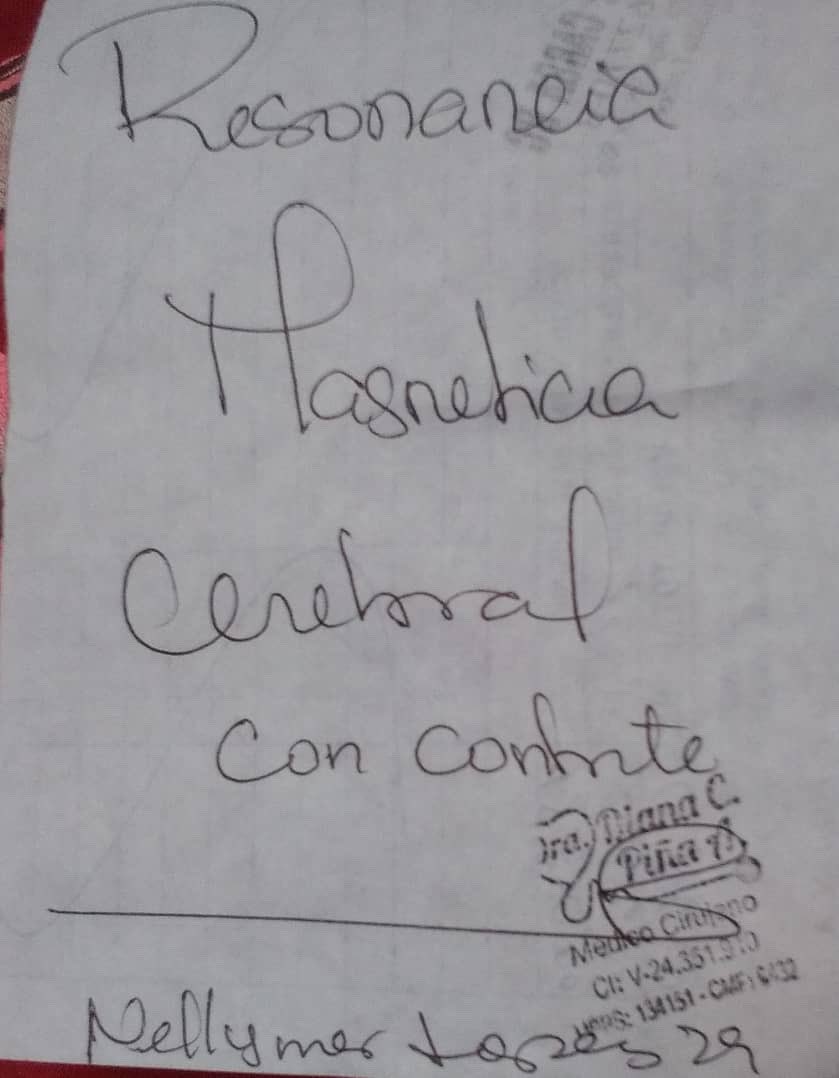 Resonancia
Magnetica
Cerebral
con contrste
Dra. Diana C.
Piña A.
Médico Cirujano
CI: V-24.351.910
MPPS: 134151 - CMF: 6432
Nellymar Lopez 29